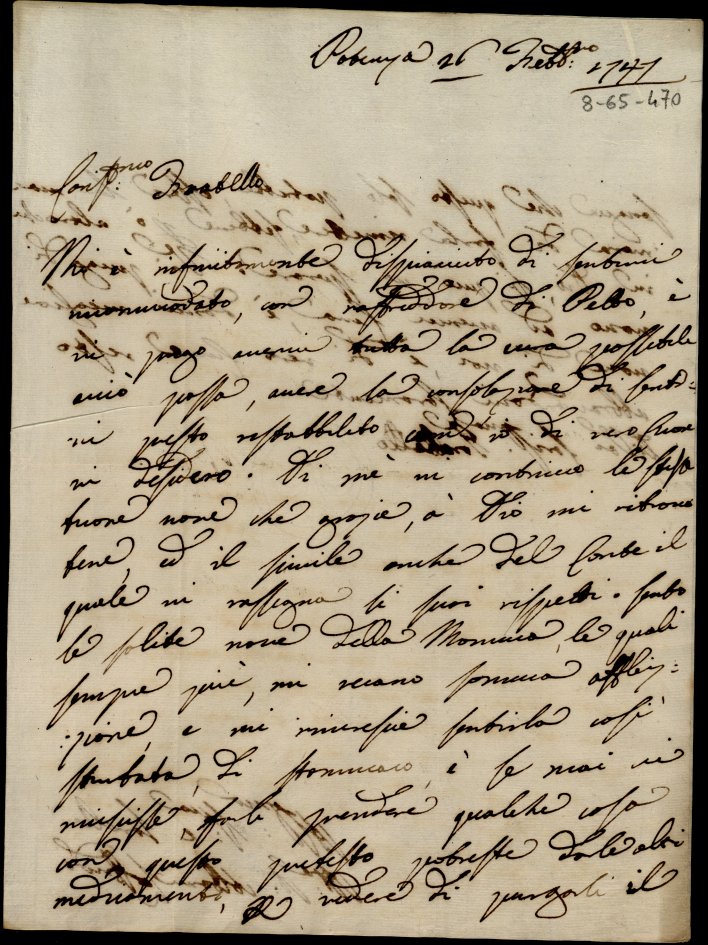 Potenza 26 Febb:ro 1747
8-65-470
Cariss:mo Fratello
Mi è infinitamente dispiaciuto di sentirvi
incomodato, con raffreddore di Petto, è
vi prego avervi tutta la cura possibile
acciò possa, avere la consolazione di senti=
vi presto ristabbilito com' io di vero Cuore
vi desidero. Di mè vi continuo le stesse
buone nove che grazie, à Dio mi ritrovo
bene, ed il simile anche del Conte il
quale vi rassegna li suoi rispetti. sento
le solite nove della Mamma, le quali
sempre più, mi recano somma affli=
:zione, e mi rincresce sentirla così
sturbata, di stommaco, è se mai vi
riuscisse, farli prendere qualche cosa
con questo pretesto potreste darle altri
medicamenti, vedere di purgarli il